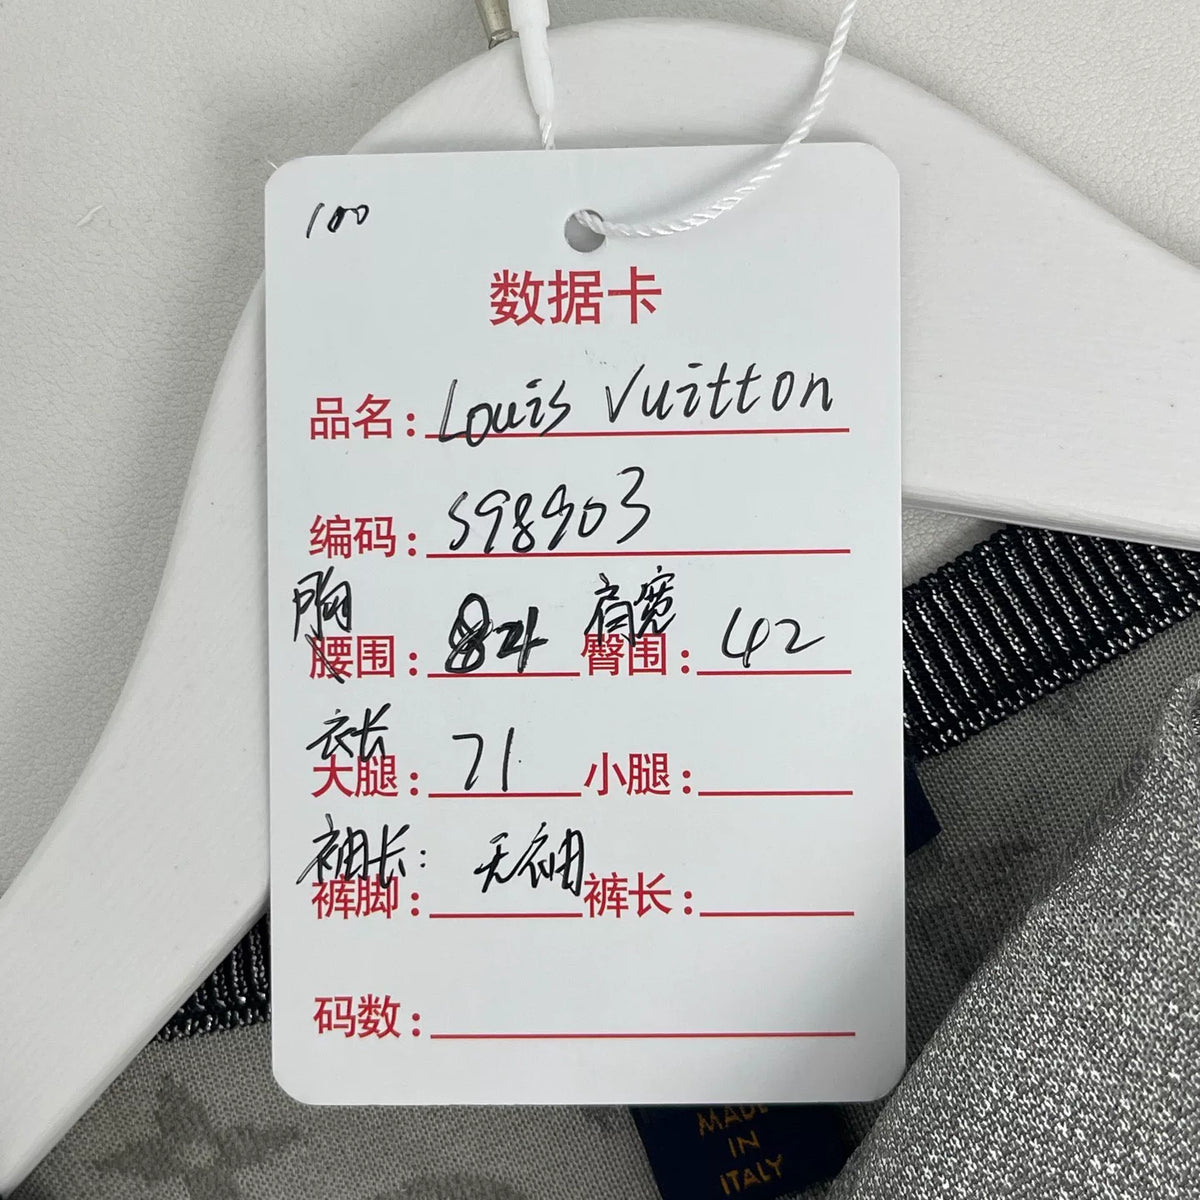 100
数据卡
品名: Louis Vuitton
编码: S98903
胸 肩宽
腰围: 84 臀围: 42
衣长
大腿: 71 小腿:
袖长: 无袖
裤脚: 裤长:
码数:
MADE
IN
ITALY